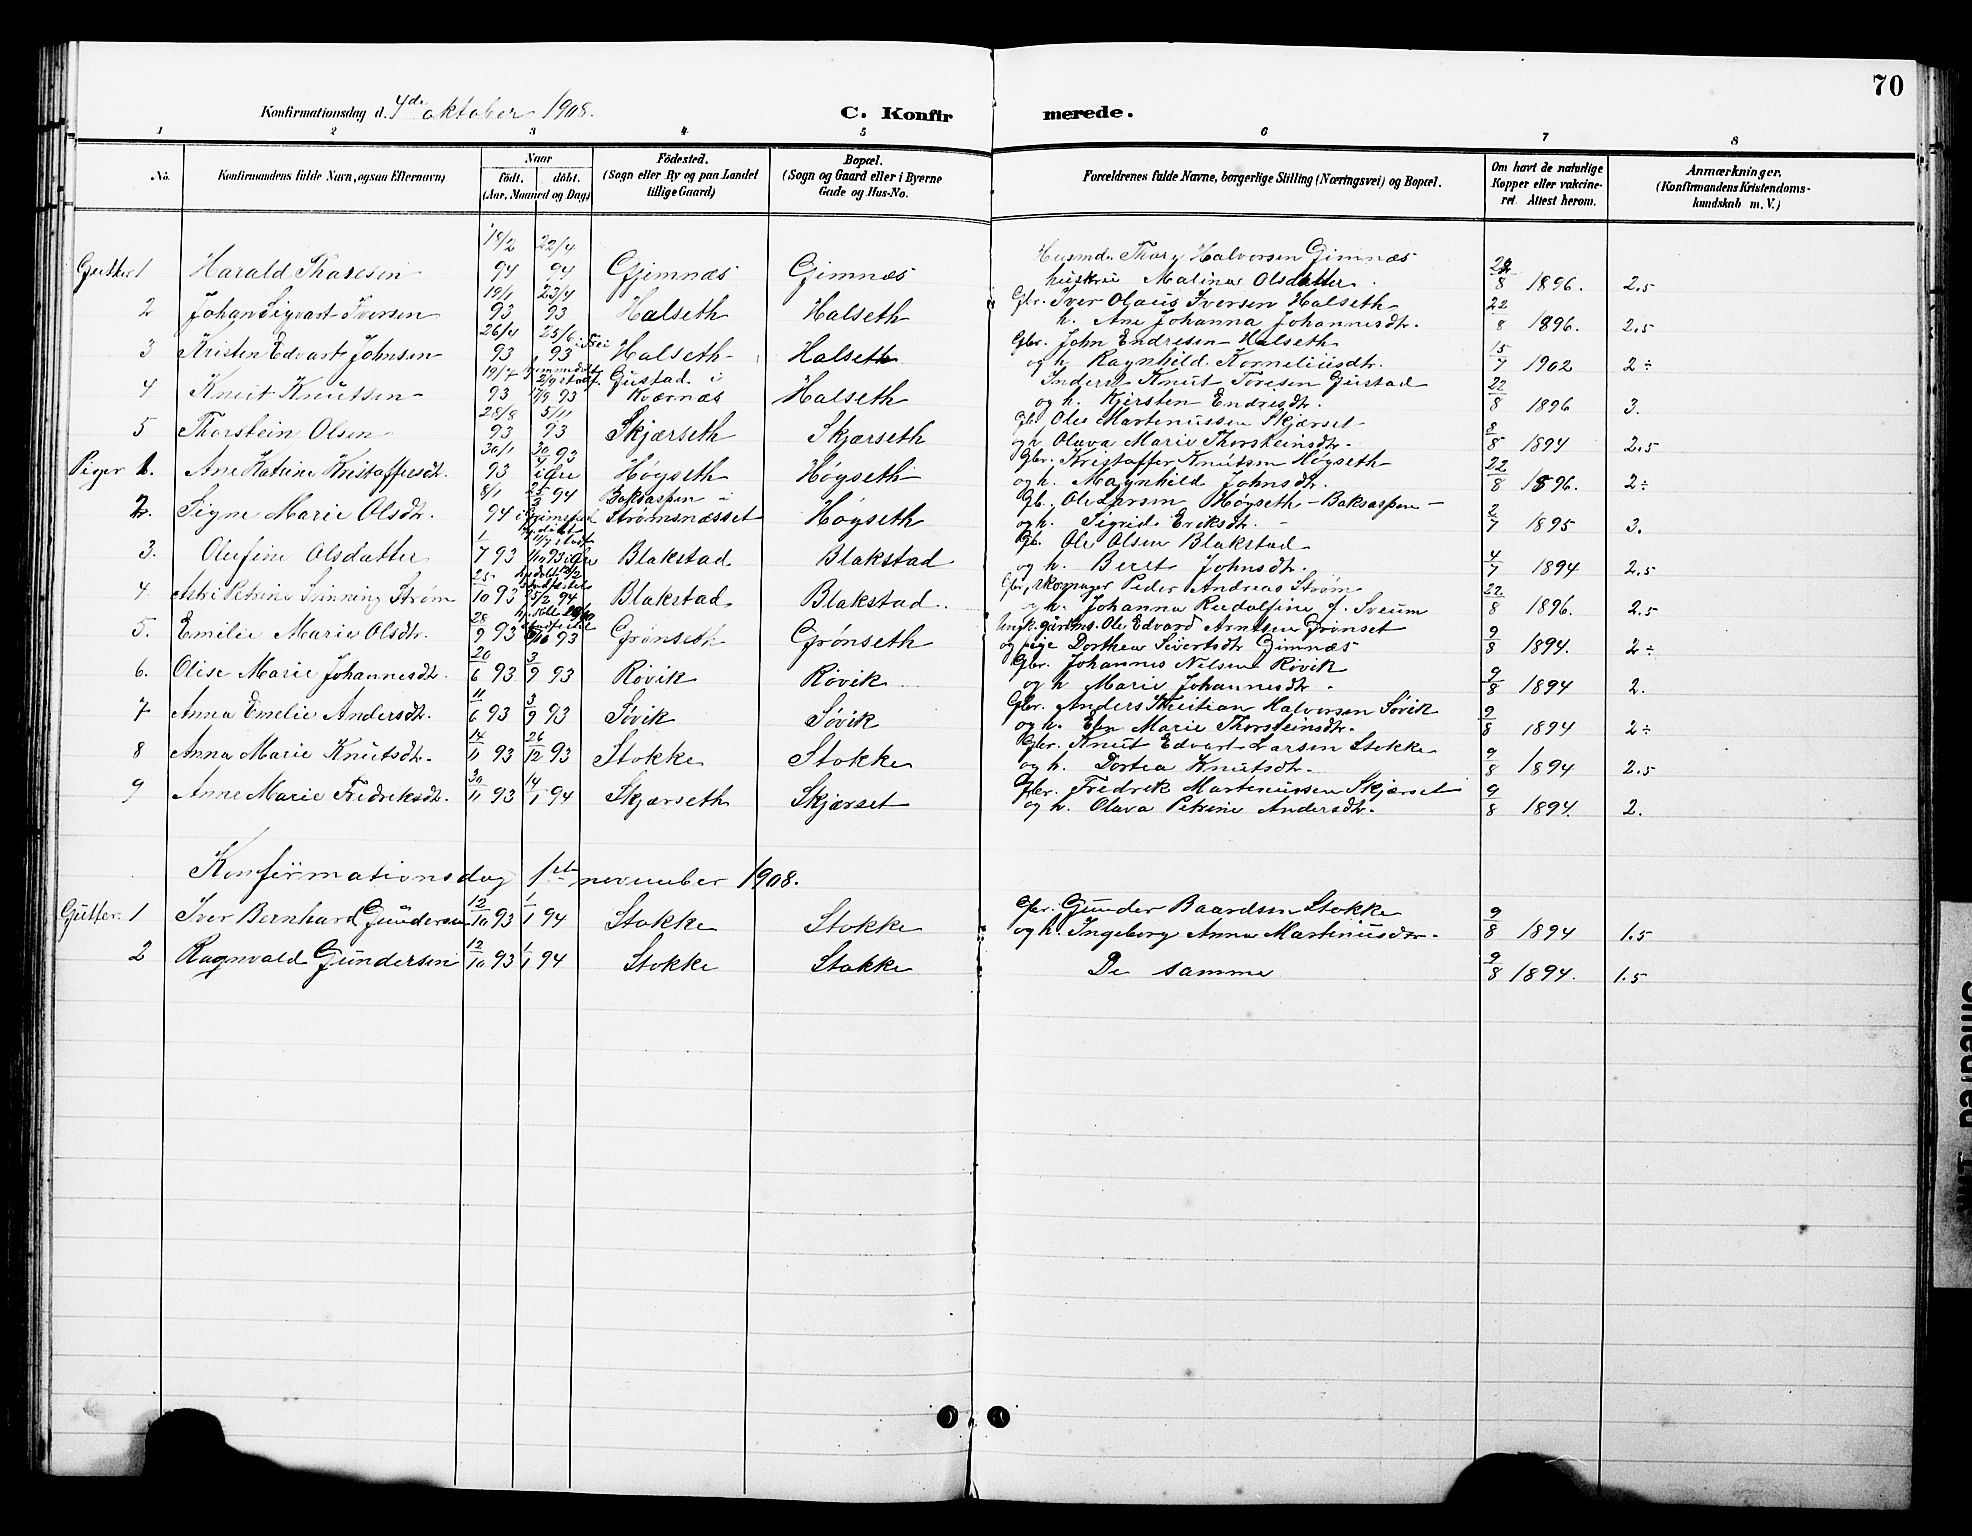 70
Konfirmationsdag d. 4de oktober 1908.
C. Konfirmerede.
1 2 3 4 5 6 7 8
No.
Konfirmandens fulde Navn, ogsaa Efternavn)
Naar
födt. döbt.
(Aar, Maaned og Dag)
Födested.
(Sogn eller By og paa Landet tillige Gaard)
Bopæl.
(Sogn og Gaard eller i Byerne Gade og Hus-No.
Forældrenes fulde Navne, borgerlige Stilling (Næringsvei) og Bopæl.
Om havt de naturlige Kopper eller vakcineret Attest herom.
Anmærkninger.
(Konfirmandens Kristendomskundskab m. V.)
Gutter 1 Harald Thoresen 18/2 94 22/4 94 Gjemnæs Gimnæs Husmd. Thore Halvorsen Gimnæs
hustru Malina Olsdatter 8 1896. 2.5
2 Johan Sigvart Iversen 19/1 93 23/4 93 Halseth Halseth Gbr. Iver Olaus Iversen Halseth
h. Ane Johanna Johannesdtr. 22/8 1896. 2.5
3 Kristen Edvart Johnsen 26/4 93 25/6 93 Halseth Halseth Gbr. John Endresen Halseth
og h. Ragnhild Korneliusdtr. 15/7 1902 2÷
4 Knut Knutsen 19/4 93 17/9 93 Gustad i Kværnæs Halseth Inderst Knut Toresen Gustad
og h. Kjersten Endresdtr. 22/8 1896 3.
5 Thorstein Olsen 28/8 93 5/11 93 Skjærseth Skjærseth Gbr. Ole Martinussen Skjærset
og h. Olava Marie Thorsteinsdtr. 8/8 1894 2.5
Piger 1. Ane Katrine Kristoffersdtr. 30/1 93 30/4 93 i Øre Høgseth Høgseth Gbr. Kristoffer Knutsen Høgseth
og h. Magnhild Johnsdtr. 22/8 1896. 2÷
2. Signe Marie Olsdtr. 8/1 94 25/3 94 Baksaspen i Strømsnæsset Høgseth Gb. Ole Larsen Høgseth - Baksaspen
og h. Sigrid Eriksdtr. 2/7 1895 3.
3. Olufine Olsdatter 1/7 93 1/10 93 i Øre Blakstad Blakstad Gb. Ole Olsen Blakstad
og h. Beret Johnsdtr. 4/7 1894 2.5
4 Astri Petrine Svinning Strøm 25/10 93 25/2 94 Blakstad Blakstad. Gbr, skomager Peder Andreas Strøm
og h. Johanna Rudolfine f. Sveum 22/8 1896. 2.5
5. Emilie Marie Olsdtr. 28/9 93 93 Grønseth Grønseth Ungk. gårdms. Ole Edvard Arntsen Grønset
og pige Dorthea Sivertsdtr Gimnæs 9/8 1894. 2÷
6. Olise Marie Johannesdtr. 20/6 93 3/9 93 Røvik Røvik Gbr. Johannes Nilsen Røvik
og h Marie Johannesdtr. 9/8 1894 2.
7 Anna Emelie Andersdtr. 11/6 93 3/9 93 Søvik Søvik Gbr. Anders Kristian Halvorsen Søvik
og h. Elen Marie Thorsteinsdtr. 9/8 1894 2÷
8 Anna Marie Knutsdtr. 14/11 93 26/12 93 Stokke Stokke Gbr. Knut Edvart Larsen Stokke
og h. Dortea Knutsdtr. 9/8 1894 2.5
9 Anne Marie Fredriksdtr. 30/11 93 14/1 94 Skjærseth Skjærset Gbr. Fredrik Martinussen Skjærset
og h. Olava Petrine Andersdtr. 9/8 1894. 2.
Konfirmationsdag 1ste november 1908.
Gutter. 1 Iver Bernhard Gundersen 12/10 93 1/1 94 Stokke Stokke Gbr. Gunder Baardsen Stokke
og h. Ingeborg Anna Martinusdtr. 9/8 1894 1.5
2 Ragnvald Gundersen 12/10 93 1/1 94 Stokke Stokke De samme 9/8 1894. 1.5